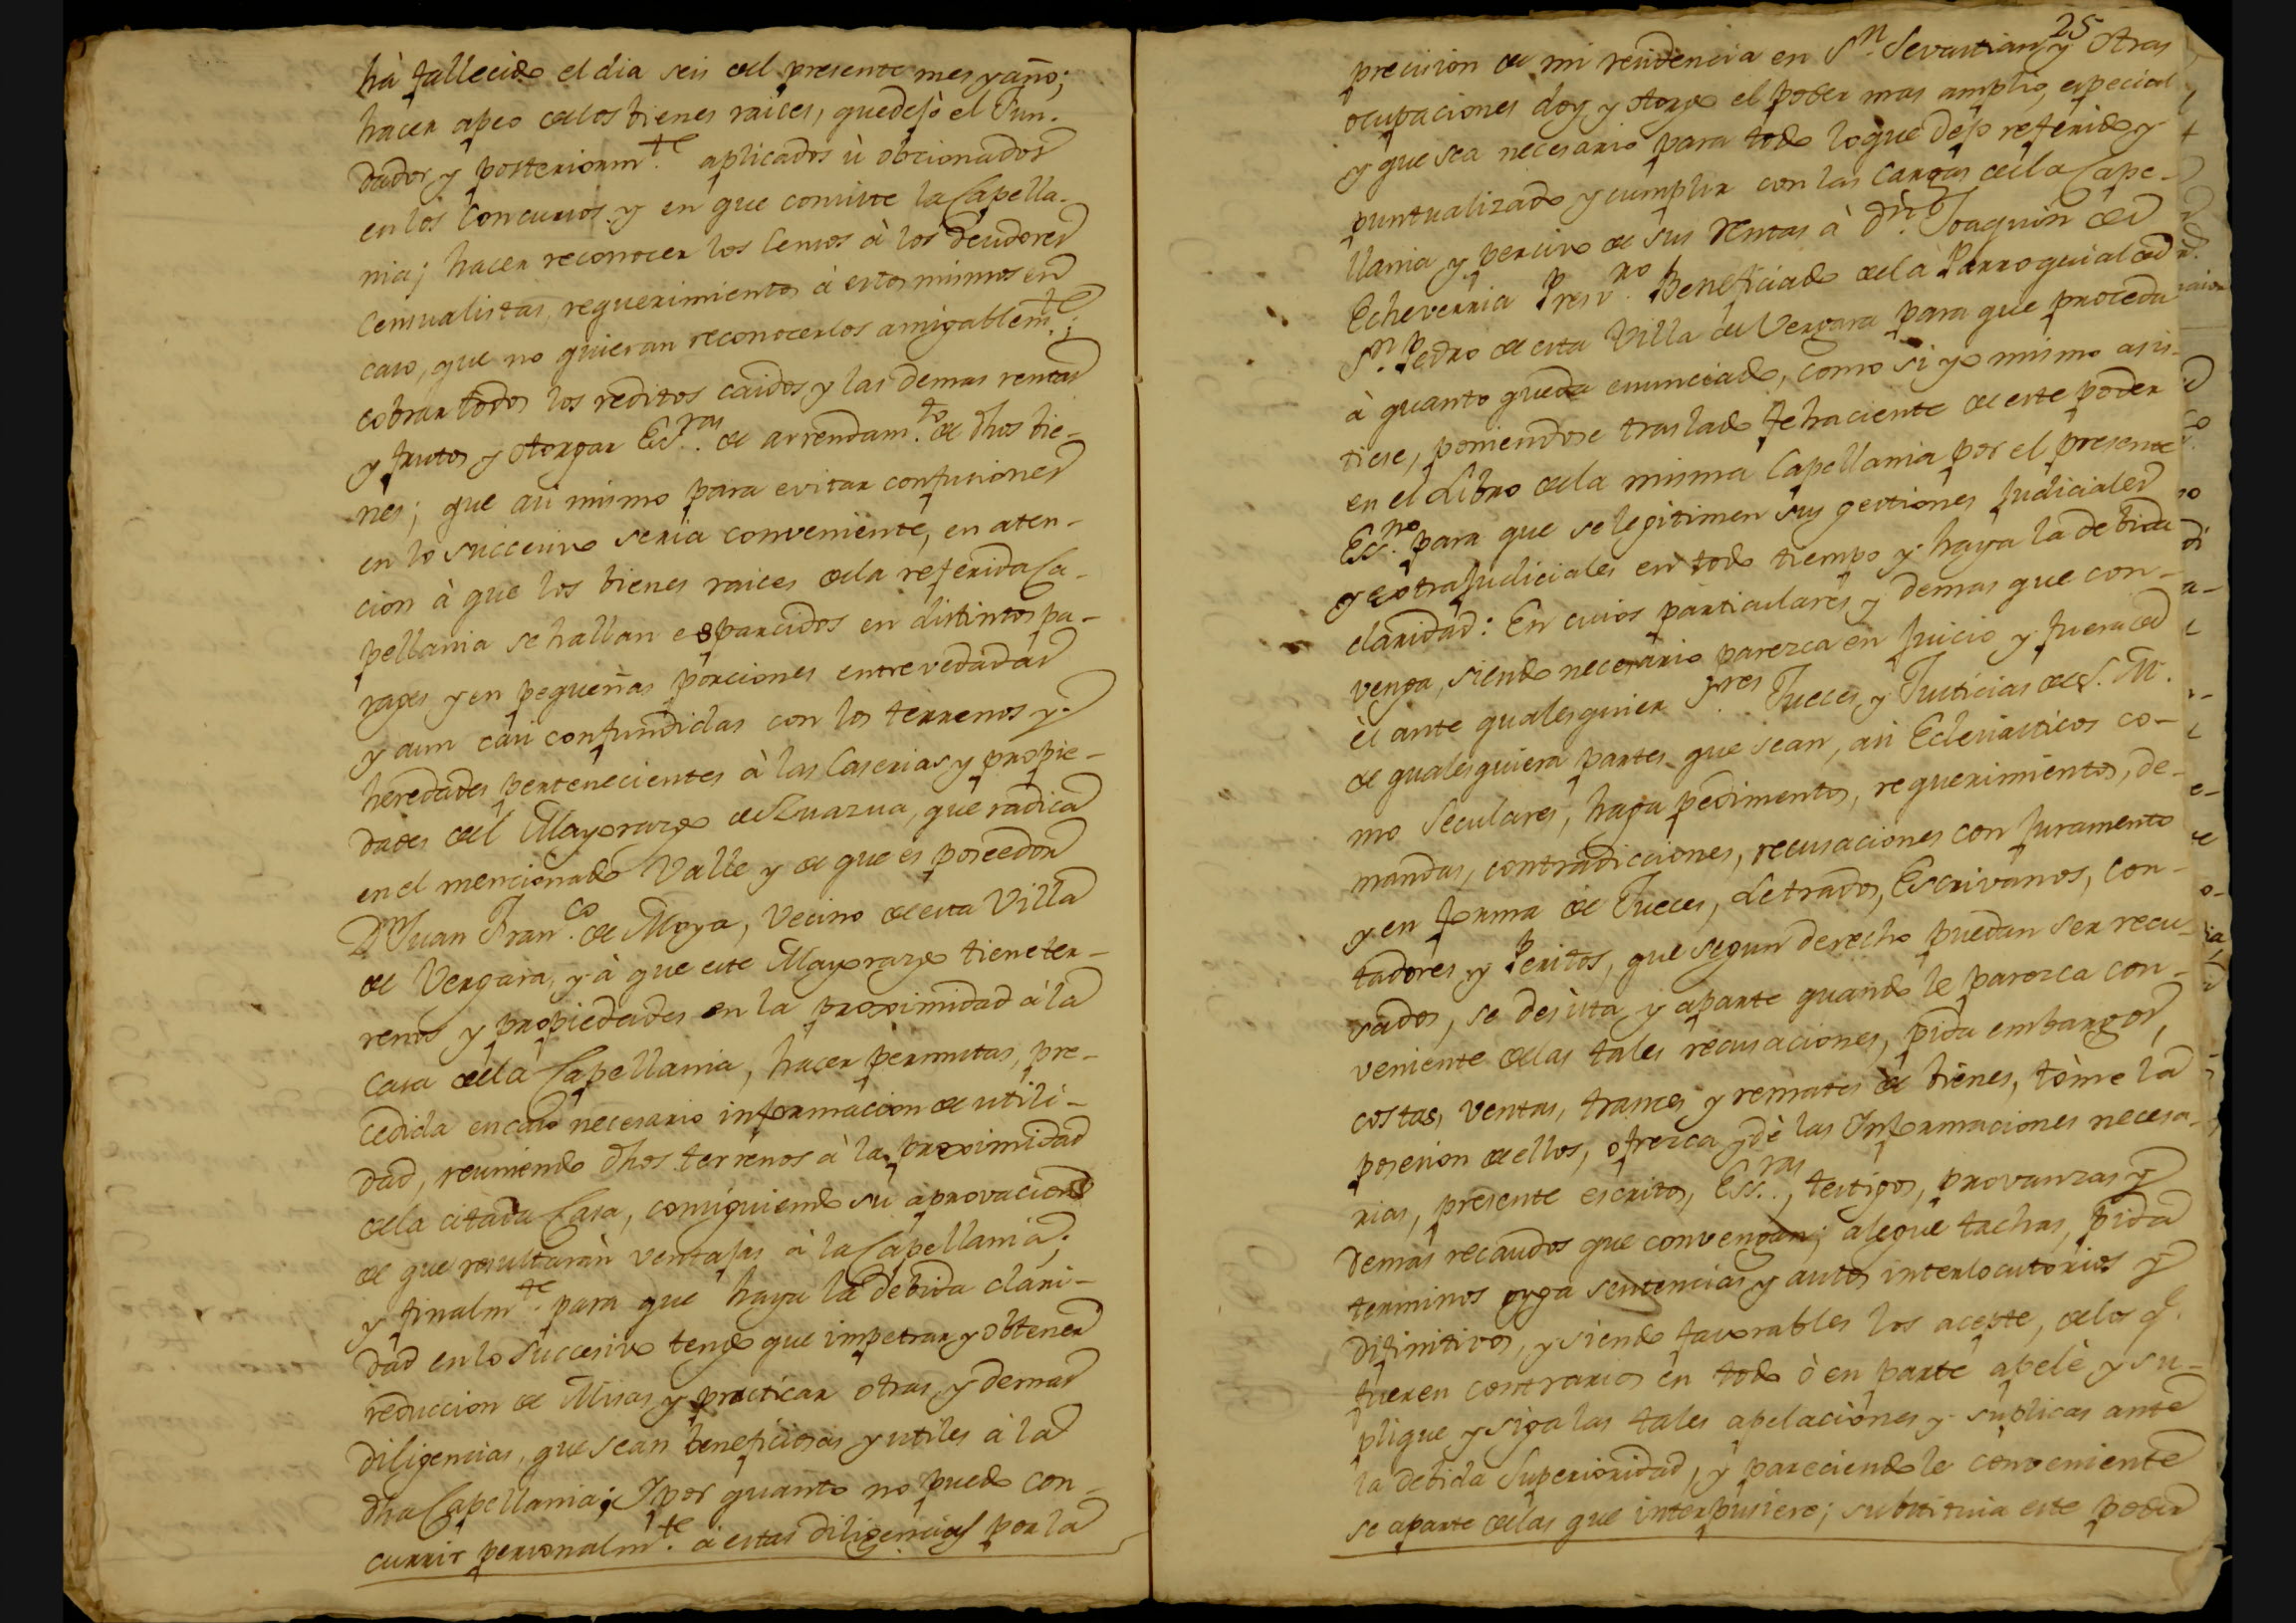 hà fallecido el dia seis del presente mes y año;
hacer apeo de los bienes raices, que dejò el Fun-
dador y posteriorm.te aplicados ù obcionados
en los Concursos y en que consiste la Capella-
nia; hacer reconocer los Censos à los deudores
Censualistas, requerimientos à estos mismos en
caso, que no quieran reconocerlos amigablem.te;
cobrar todos los reditos caidos y las demas rentas
y frutos y otorgar Ess.ras de arrendam.to de dhos bie-
nes; que asi mismo para evitar confusiones
en lo succesivo seria conveniente, en aten-
cion à que los bienes raices de la referida Ca-
pellania se hallan esparcidos en distintos pa-
rages y en pequeñas porciones entrevedadas
y aun casi confundidas con los terrenos y
heredades pertenecientes à las Caserias y propie-
dades del Mayorazgo de Zuazua, que radica
en el mencionado Valle y de que es poseedor
Dn Juan Fran.co de Moya, Vecino de esta Villa
de Vergara, y à que este Mayorazgo tiene ter-
renos y propiedades en la proximidad à la
Casa de la Capellania, hacer permutas, pre-
cedida en caso necesario informacion de utili-
dad, reuniendo dhos terrenos à la proximidad
de la citada Casa, consiguiendo su aprovacion
de que resultaràn ventajas à la Capellania;
y finalm.te para que haya la debida clari-
dad en lo Succesivo tengo que impetrar y obtener
reduccion de Misas y practicar otras y demas
diligencias, que sean beneficiosas y utiles à la
dha Capellania; Y por quanto no puedo con-
currir personalm.te à estas diligencias por la
25
precision de mi residencia en Sn. Sevastian y otras
ocupaciones doy y otorgo el poder mas amplio, especial
y que sea necesario para todo lo que dejo referido y
puntualizado y cumplir con las Cargas de la Cape-
llania y percivo de sus Rentas à Dn. Joaquin de
Echeverria Presv.ro Beneficiado de la Parroquial de
Sn. Pedro de esta Villa de Vergara para que proceda
à quanto queda enunciado, como si yo mismo asis-
tiese, poniendose traslado fehaciente de este poder
en el Libro de la misma Capellania por el presente
Ess.no para que se legitimen sus gestiones Judiciales
y extrajudiciales en todo tiempo y haya la debida
claridad: En cuios particulares y demas que con-
venga, siendo necesario parezca en Juicio y fuera de
èl ante qualesquier S.res Jueces y Justicias de S. M.
de qualesquiera partes que sean, asi Eclesiasticos co-
mo Seculares, haga pedimentos, requerimientos, de-
mandas, contradicciones, recusaciones con Juramento
y en forma de Jueces, Letrados, Escrivanos, Con-
tadores y Peritos, que segun derecho puedan ser recu-
sados, se desista y aparte quando le parezca con-
veniente de las tales recusaciones, pida embargos,
costas, ventas, trances y remates de bienes, tòme la
posesion de ellos, ofrezca y dè las Informaciones necesa-
rias, presente escritos, Ess.ras, testigos, provanzas y
demas recaudos que convengan; alegue tachas, pida
terminos oyga sentencias y autos interlocutorios y
difinitivos, y siendo favorables los acepte, de los q.
fueren contrarios en todo ò en parte apele y su-
plique y siga las tales apelaciones y suplicas ante
la debida Superioridad, y pareciendole conveniente
se aparte de las que interpusiere; substituia este poder